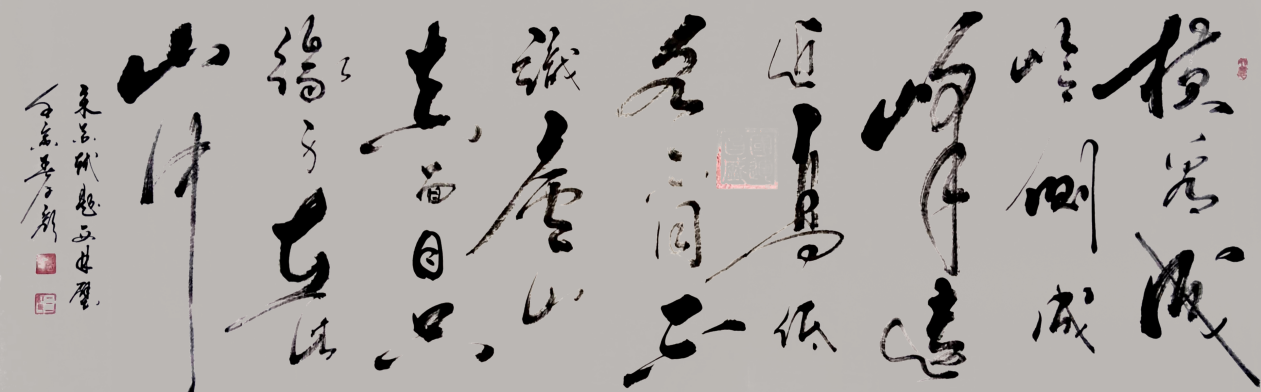 横看成
岭侧成
峰遠
近高低
各不同不
識廬山
真面目只
緣身在此
山中
宋苏轼题西林壁